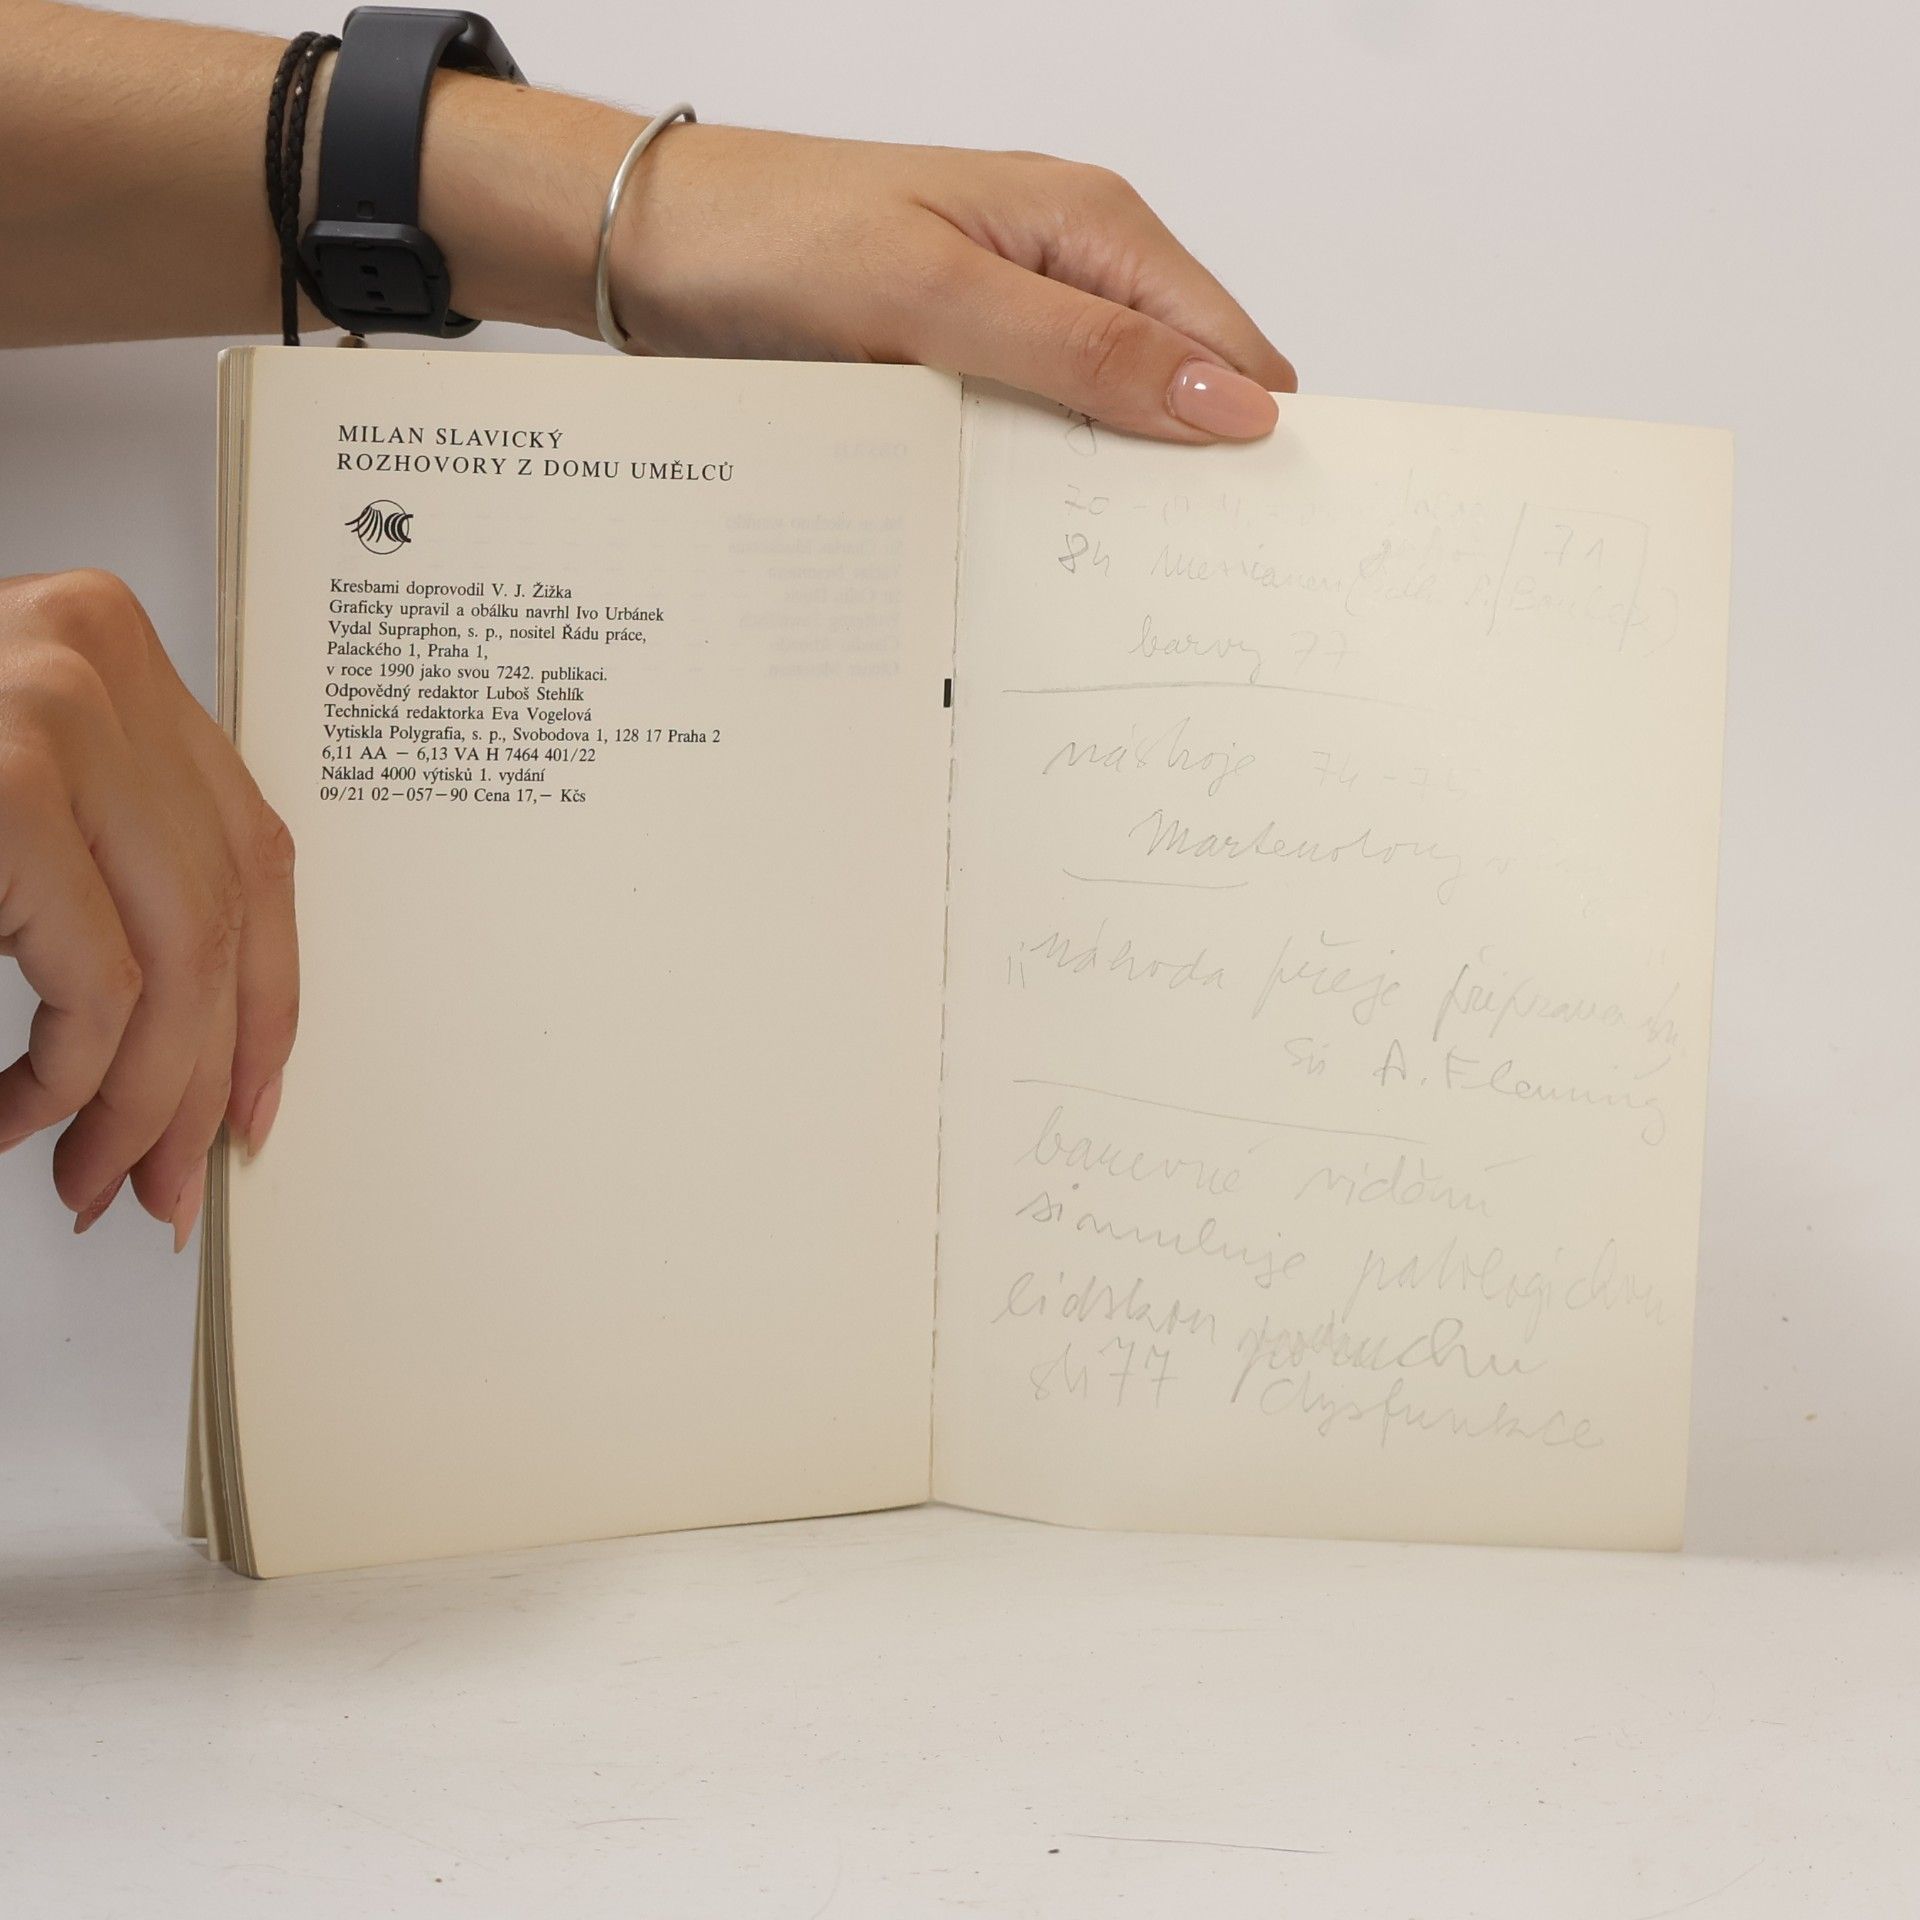 MILAN SLAVICKÝ
ROZHOVORY Z DOMU UMĚLCŮ
Kresbami doprovodil V. J. Žižka
Graficky upravil a obálku navrhl Ivo Urbánek
Vydal Supraphon, s. p., nositel Řádu práce,
Palackého 1, Praha 1,
v roce 1990 jako svou 7242. publikaci.
Odpovědný redaktor Luboš Stehlík
Technická redaktorka Eva Vogelová
Vytiskla Polygrafia, s. p., Svobodova 1, 128 17 Praha 2
6,11 AA — 6,13 VA H 7464 401/22
Náklad 4000 výtisků 1. vydání
09/21 02—057—90 Cena 17,— Kčs
70
71
84 Messiaen
barvy 77
nástroje 74-75
Martenotovy
„náhoda přeje
A. Fleming
barevné vidění
simuluje patologickou
lidskou
77 dysfunkce